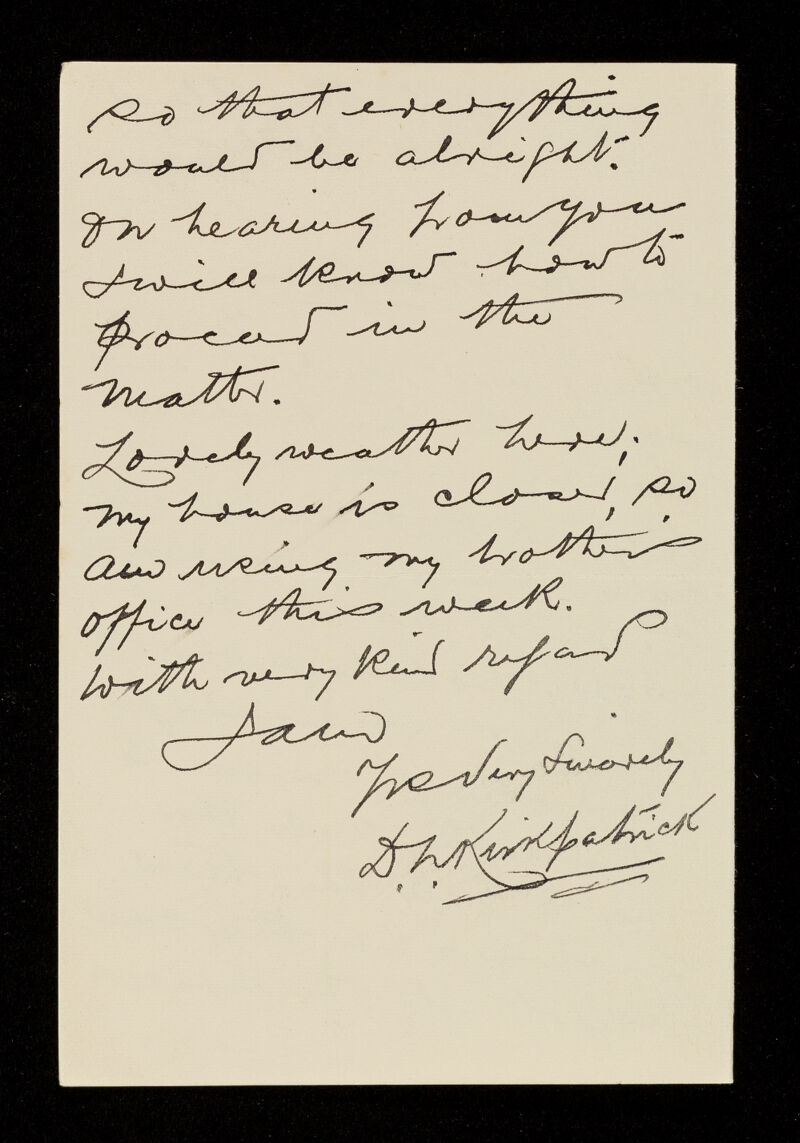 so that everything
would be alright.
On hearing from you
I will know how to
proceed in the
matter.
Lovely weather here,
my house is closed, so
am using my brother's
office this week.
With very kind regard
I am
Yrs Very Sincerely
D. L. Kirkpatrick